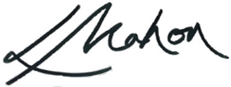 L Mahon